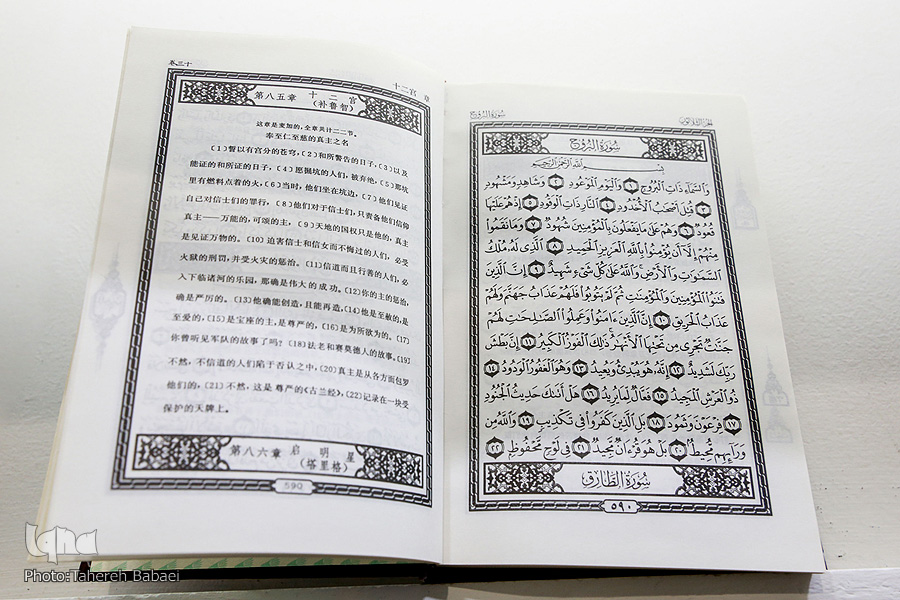 卷三十
十二宫 章
第八五章 十二宫
(补鲁智)
这章是麦加的,全章共计二二节。
奉至仁至慈的真主之名
(1)誓以有宫分的苍穹,(2)和所警告的日子,(3)以及
能证的和所证的日子,(4)愿掘坑的人们,被弃绝,(5)那坑
里有燃料点着的火,(6)当时,他们坐在坑边,(7)他们见证
自己对信士们的罪行,(8)他们对于信士们,只责备他们信仰
真主——万能的,可颂的主,(9)天地的国权只是他的,真主
是见证万物的。(10)迫害信士和信女而不悔过的人们,必受
火狱的刑罚,并受火灾的惩治。(11)信道而且行善的人们,必
入下临诸河的乐园,那确是伟大的成功。(12)你的主的惩治,
确是严厉的。(13)他确能创造,且能再造,(14)他是至赦的,是
至爱的,(15)是宝座的主,是尊严的,(16)是为所欲为的。(17)
你曾听见军队的故事了吗?(18)法老和赛莫德人的故事。(19)
不然,不信道的人们陷于否认之中,(20)真主是从各方面包罗
他们的,(21)不然,这是尊严的《古兰经》,(22)记录在一块受
保护的天牌上。
第八六章 启明星
(塔里格)
590
سُورَةُ البُرُوج
الجزء الثلاثون
سُورَةُ البُرُوج
بِسْمِ اللَّهِ الرَّحْمَٰنِ الرَّحِيمِ
وَالسَّمَاءِ ذَاتِ الْبُرُوجِ ١ وَالْيَوْمِ الْمَوْعُودِ ٢ وَشَاهِدٍ وَمَشْهُودٍ
٣ قُتِلَ أَصْحَابُ الْأُخْدُودِ ٤ النَّارِ ذَاتِ الْوَقُودِ ٥ إِذْ هُمْ عَلَيْهَا
قُعُودٌ ٦ وَهُمْ عَلَىٰ مَا يَفْعَلُونَ بِالْمُؤْمِنِينَ شُهُودٌ ٧ وَمَا نَقَمُوا
مِنْهُمْ إِلَّا أَن يُؤْمِنُوا بِاللَّهِ الْعَزِيزِ الْحَمِيدِ ٨ الَّذِي لَهُ مُلْكُ
السَّمَاوَاتِ وَالْأَرْضِ وَاللَّهُ عَلَىٰ كُلِّ شَيْءٍ شَهِيدٌ ٩ إِنَّ الَّذِينَ
فَتَنُوا الْمُؤْمِنِينَ وَالْمُؤْمِنَاتِ ثُمَّ لَمْ يَتُوبُوا فَلَهُمْ عَذَابُ جَهَنَّمَ وَلَهُمْ
عَذَابُ الْحَرِيقِ ١٠ إِنَّ الَّذِينَ آمَنُوا وَعَمِلُوا الصَّالِحَاتِ لَهُمْ
جَنَّاتٌ تَجْرِي مِن تَحْتِهَا الْأَنْهَارُ ذَٰلِكَ الْفَوْزُ الْكَبِيرُ ١١ إِنَّ بَطْشَ
رَبِّكَ لَشَدِيدٌ ١٢ إِنَّهُ هُوَ يُبْدِئُ وَيُعِيدُ ١٣ وَهُوَ الْغَفُورُ الْوَدُودُ ١٤
ذُو الْعَرْشِ الْمَجِيدُ ١٥ فَعَّالٌ لِّمَا يُرِيدُ ١٦ هَلْ أَتَاكَ حَدِيثُ الْجُنُودِ
١٧ فِرْعَوْنَ وَثَمُودَ ١٨ بَلِ الَّذِينَ كَفَرُوا فِي تَكْذِيبٍ ١٩ وَاللَّهُ مِن
وَرَائِهِم مُّحِيطٌ ٢٠ بَلْ هُوَ قُرْآنٌ مَّجِيدٌ ٢١ فِي لَوْحٍ مَّحْفُوظٍ ٢٢
سُورَةُ الطَّارِق
٥٩٠
iqna
Photo:Tahereh Babaei